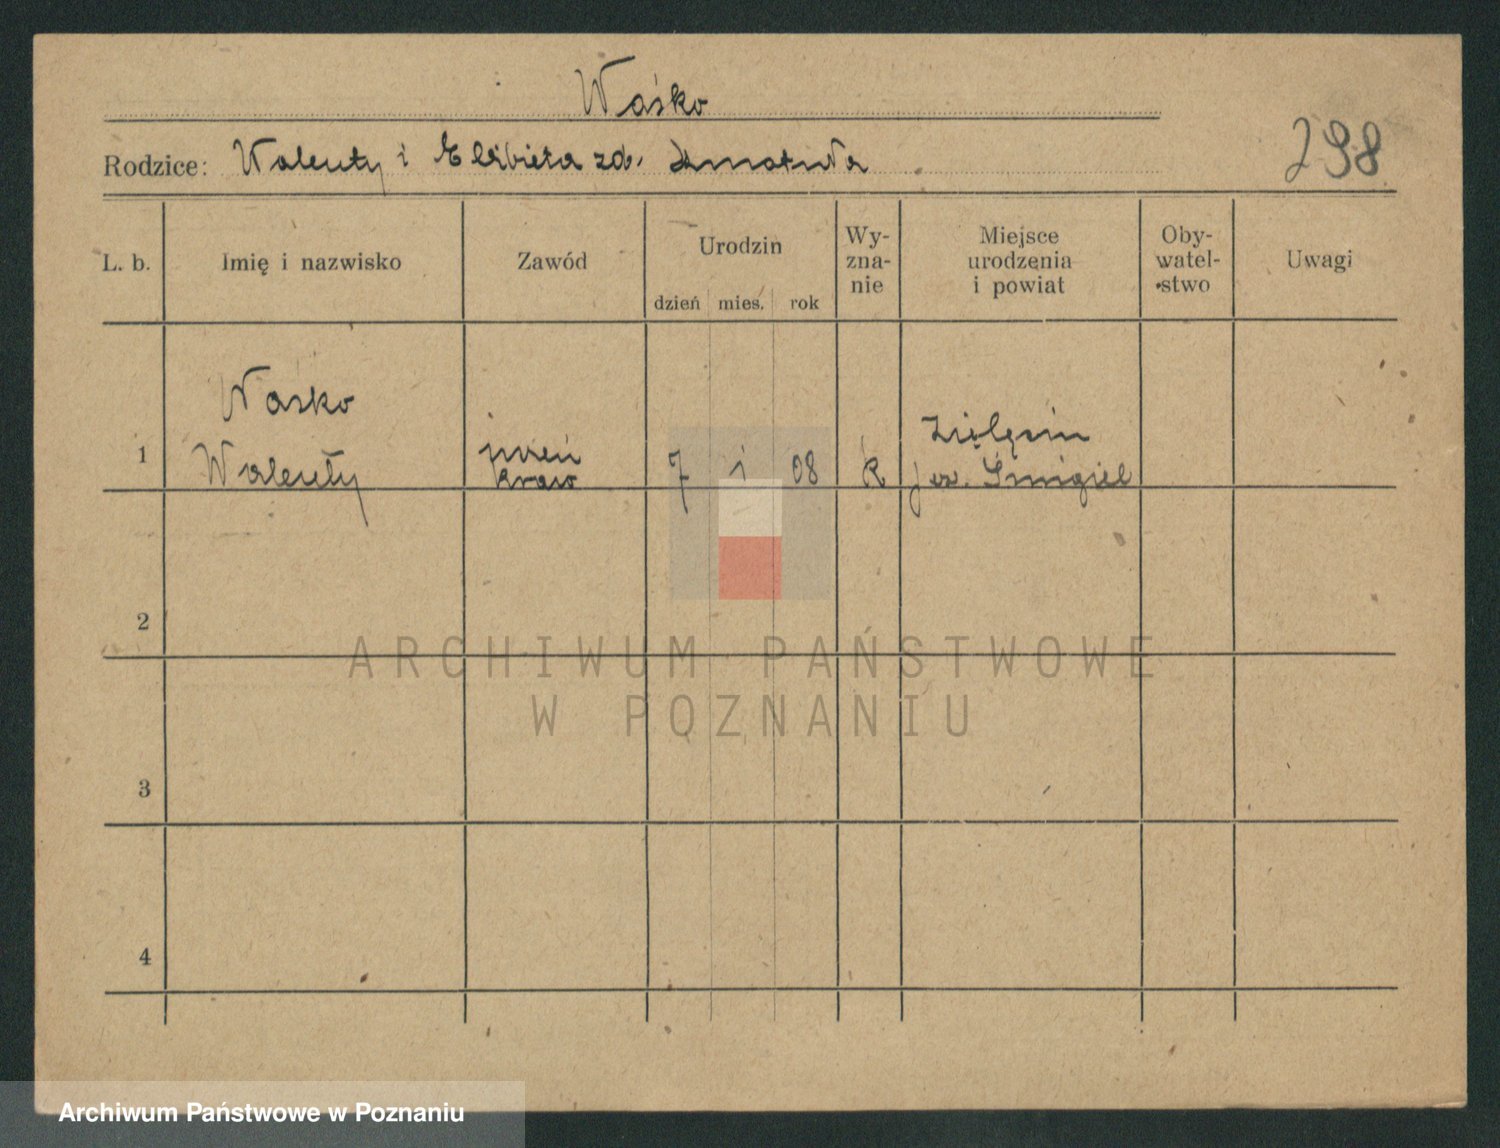 Waśko
298
Rodzice: Walenty i Elżbieta zd.
L. b.
Imię i nazwisko
Zawód
Urodzin
dzień mies. rok
Wy-
zna-
nie
Miejsce
urodzenia
i powiat
Oby-
watel-
stwo
Uwagi
1
Waśko
Walenty
kraw
7 1 08
R
Zielęcin
Śmigiel
2
3
4
ARCHIWUM PAŃSTWOWE
W POZNANIU
Archiwum Państwowe w Poznaniu